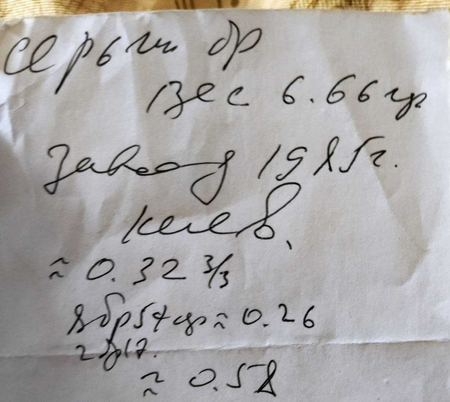 Серьги бр
Вес 6.66 гр
Завод 1985 г.
Киев.
≈ 0.32 3/3
8 бр 57 гр ≈ 0.26
2 бр 17.
≈ 0.58